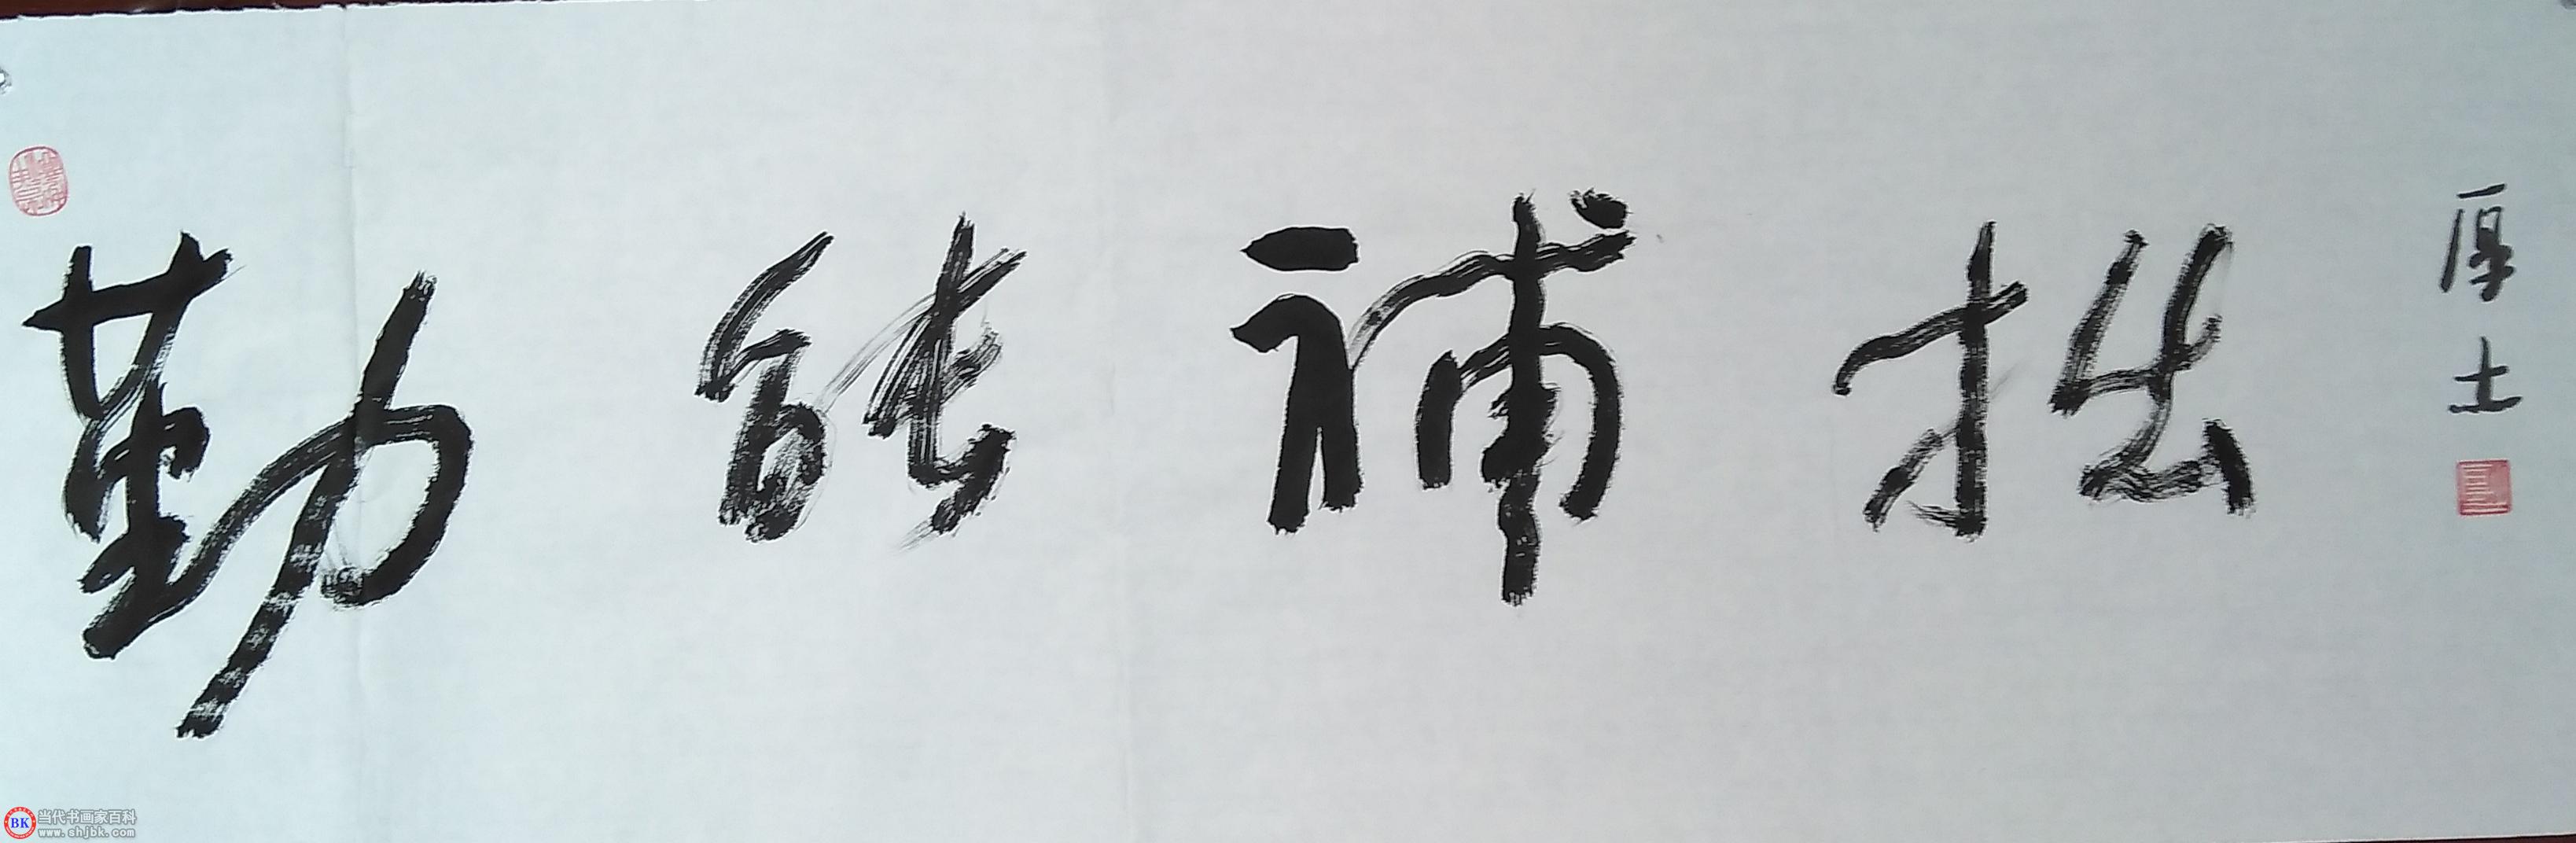 勤能补拙
厚土
BK 当代书画家百科
www.shjbk.com